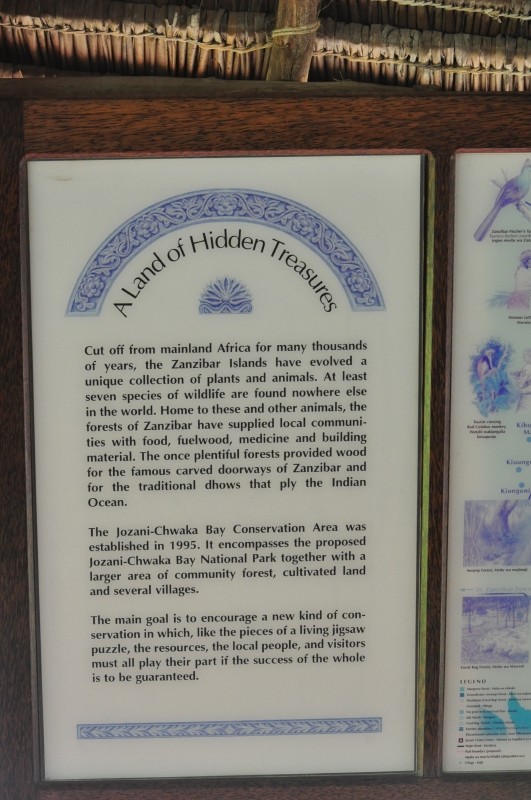 A Land of Hidden Treasures
Cut off from mainland Africa for many thousands
of years, the Zanzibar Islands have evolved a
unique collection of plants and animals. At least
seven species of wildlife are found nowhere else
in the world. Home to these and other animals, the
forests of Zanzibar have supplied local communi-
ties with food, fuelwood, medicine and building
material. The once plentiful forests provided wood
for the famous carved doorways of Zanzibar and
for the traditional dhows that ply the Indian
Ocean.
The Jozani-Chwaka Bay Conservation Area was
established in 1995. It encompasses the proposed
Jozani-Chwaka Bay National Park together with a
larger area of community forest, cultivated land
and several villages.
The main goal is to encourage a new kind of con-
servation in which, like the pieces of a living jigsaw
puzzle, the resources, the local people, and visitors
must all play their part if the success of the whole
is to be guaranteed.
LEGEND